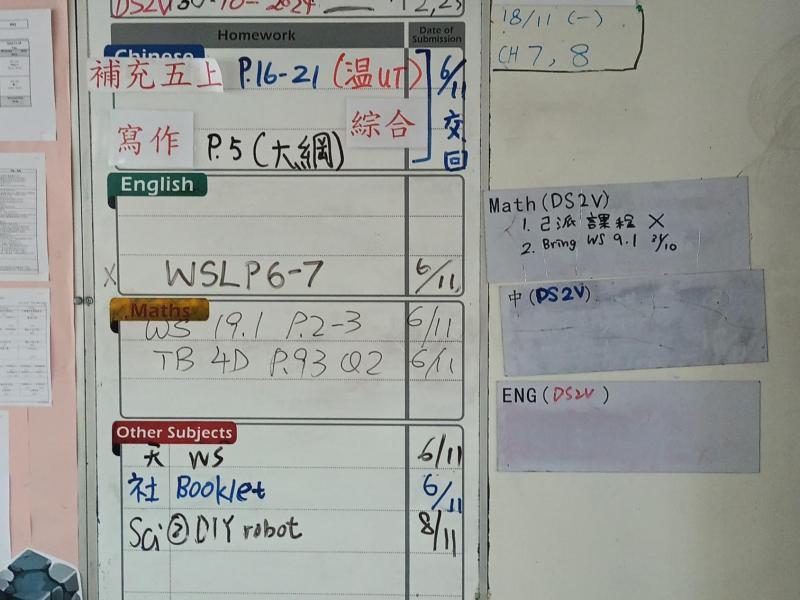 DS2V 30-10-2024
Homework
Date of Submission
Chinese
補充五上 P.16-21 (温UT) 6/11 交回
寫作 P.5 (大綱) 綜合
English
X WSLP6-7 6/11
Maths
WS 19.1 P.2-3 6/11
TB 4D P.93 Q2 6/11
Other Subjects
WS 6/11
社 Booklet 6/11
Sci ② DIY robot 8/11
18/11 (一)
CH 7, 8
Math(DS2V)
1. 已派 課程 X
2. Bring WS 9.1 31/10
中(DS2V)
ENG(DS2V)